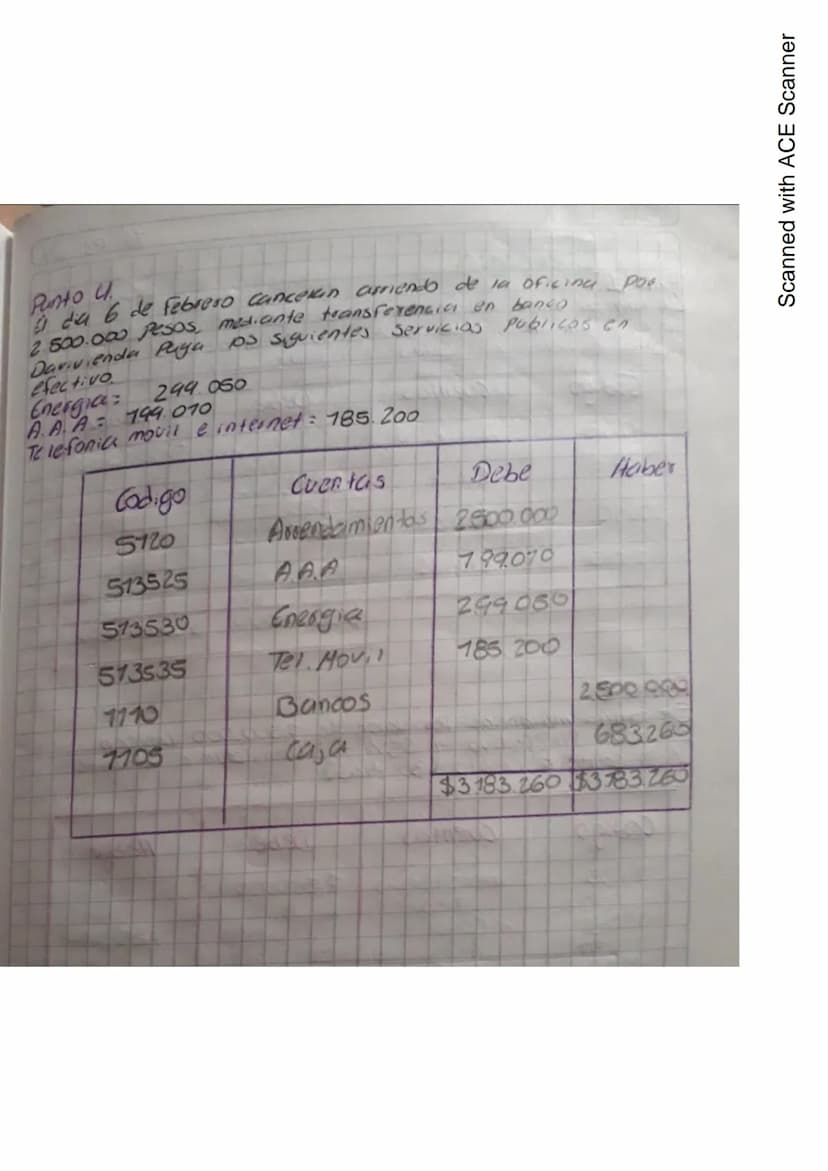 Punto 4.
El dia 6 de Febrero cancelan arriendo de la oficina por
2 500.000 Pesos, mediante transferencia en banco
Davivienda Paga los siguientes servicios Publicos en
efectivo.
Energia: 299 050
A.A.A = 199.010
Telefonica movil e internet: 185.200
Codigo Cuentas Debe Haber
5120 Arrendamientos 2500 000
513525 A.A.A 199.010
513530 Energia 299 050
513535 Tel. Movil 185 200
1110 Bancos 2.500.000
1105 Caja 683.260
$3183.260 $3183.260
Scanned with ACE Scanner